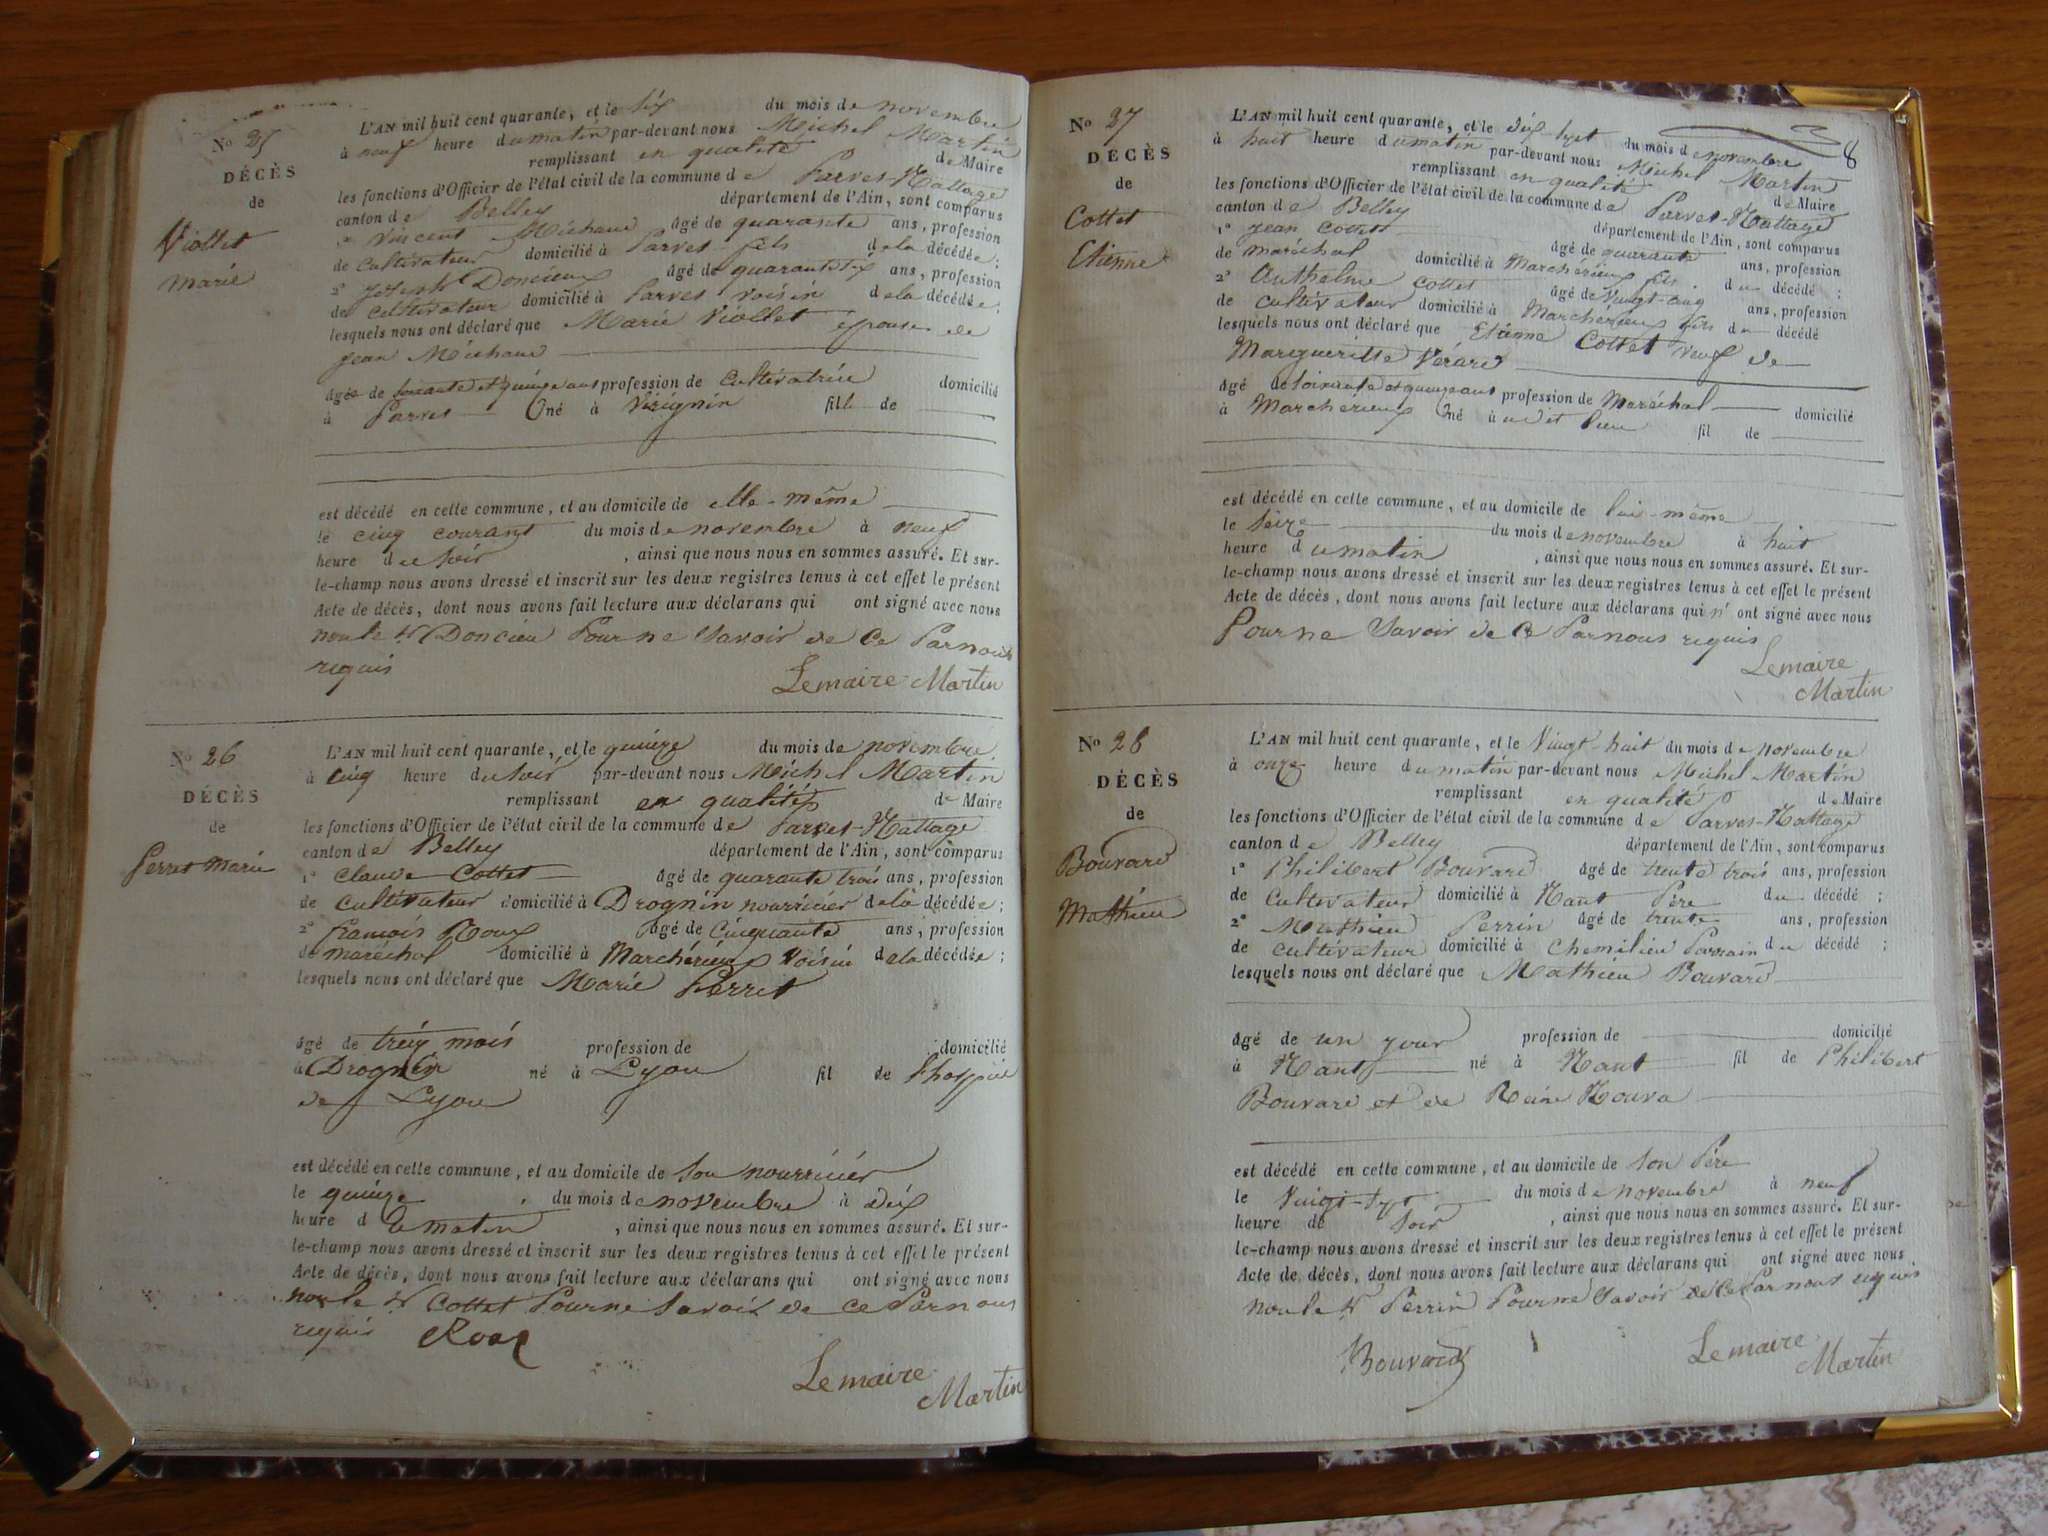 No 25
DÉCÈS
de
Viollet
marie
L'AN mil huit cent quarante, et le six du mois de novembre
à neuf heure du matin par-devant nous Michel Martin
remplissant en qualité de Maire
les fonctions d'Officier de l'état civil de la commune de Parves-Nattage
canton de Belley département de l'Ain, sont comparus
1° Vincent Michaud âgé de quarante ans, profession
de cultivateur domicilié à Parves fils de la décédée;
2° Joseph Doncieux âgé de quarante six ans, profession
de cultivateur domicilié à Parves voisin de la décédée;
lesquels nous ont déclaré que Marie Viollet épouse de
Jean Michaud
âgée de soixante et quinze ans profession de Cultivatrice domicilié
à Parves né à Virignin fille de
est décédé en cette commune, et au domicile de elle-même
le cinq courant du mois de novembre à neuf
heure du soir, ainsi que nous nous en sommes assuré. Et sur-
le-champ nous avons dressé et inscrit sur les deux registres tenus à cet effet le présent
Acte de décès, dont nous avons fait lecture aux déclarans qui ont signé avec nous
non le Sr Doncieu Pour ne Savoir de ce Par nous
requis
Lemaire Martin
No 26
DÉCÈS
de
Perret Marie
L'AN mil huit cent quarante, et le quinze du mois de novembre
à cinq heure du soir par-devant nous Michel Martin
remplissant en qualité de Maire
les fonctions d'Officier de l'état civil de la commune de Parves-Nattage
canton de Belley département de l'Ain, sont comparus
1° Claude Cottet âgé de quarante trois ans, profession
de cultivateur domicilié à Drognin nourricier de la décédée;
2° francois Roux âgé de Cinquante ans, profession
de maréchal domicilié à Marchérieux Voisin de la décédée;
lesquels nous ont déclaré que Marie Perret
âgé de treiz mois profession de domicilié
à Drognin né à Lyon fil de l'hospice
de Lyon
est décédé en cette commune, et au domicile de Son nourricier
le quinze du mois de novembre à dix
heure du matin, ainsi que nous nous en sommes assuré. Et sur-
le-champ nous avons dressé et inscrit sur les deux registres tenus à cet effet le présent
Acte de décès, dont nous avons fait lecture aux déclarans qui ont signé avec nous
non le Sr Cottet Pour ne Savoir de ce Par nous
requis Roux
Lemaire
Martin
8
No 27
DÉCÈS
de
Cottet
Etienne
L'AN mil huit cent quarante, et le dix-sept du mois de novembre
à huit heure du matin par-devant nous Michel Martin
remplissant en qualité de Maire
les fonctions d'Officier de l'état civil de la commune de Parves-Nattage
canton de Belley département de l'Ain, sont comparus
1° Jean Cottet âgé de quarante ans, profession
de maréchal domicilié à Marchérieux fils du décédé;
2° Anthelme Cottet âgé de vingt-cinq ans, profession
de cultivateur domicilié à Marchérieux fils du décédé
lesquels nous ont déclaré que Etienne Cottet veuf de
Margueritte Vérard
âgé de soixante et quinze ans profession de Maréchal domicilié
à Marchérieux né à udit lieu fil de
est décédé en cette commune, et au domicile de lui-même
le seize du mois de novembre à huit
heure du matin, ainsi que nous nous en sommes assuré. Et sur-
le-champ nous avons dressé et inscrit sur les deux registres tenus à cet effet le présent
Acte de décès, dont nous avons fait lecture aux déclarans qui n'ont signé avec nous
Pour ne Savoir de ce Par nous requis
Lemaire
Martin
No 28
DÉCÈS
de
Bouvard
Mathieu
L'AN mil huit cent quarante, et le Vingt-huit du mois de novembre
à onze heure du matin par-devant nous Michel Martin
remplissant en qualité de Maire
les fonctions d'Officier de l'état civil de la commune de Parves-Nattage
canton de Belley département de l'Ain, sont comparus
1° Philibert Bouvard âgé de trente trois ans, profession
de Cultivateur domicilié à Nant Père du décédé;
2° Mathieu Perrin âgé de trente ans, profession
de cultivateur domicilié à Chemilieu Parrain du décédé;
lesquels nous ont déclaré que Mathieu Bouvard
âgé de un jour profession de domicilié
à Nant né à Nant fil de Philibert
Bouvard et de Reine
est décédé en cette commune, et au domicile de Son Père
le Vingt-sept du mois de novembre à neuf
heure de Soir, ainsi que nous nous en sommes assuré. Et sur-
le-champ nous avons dressé et inscrit sur les deux registres tenus à cet effet le présent
Acte de décès, dont nous avons fait lecture aux déclarans qui ont signé avec nous
non le Sr Perrin Pour ne Savoir de Ce Par nous requis
Bouvard
Lemaire
Martin